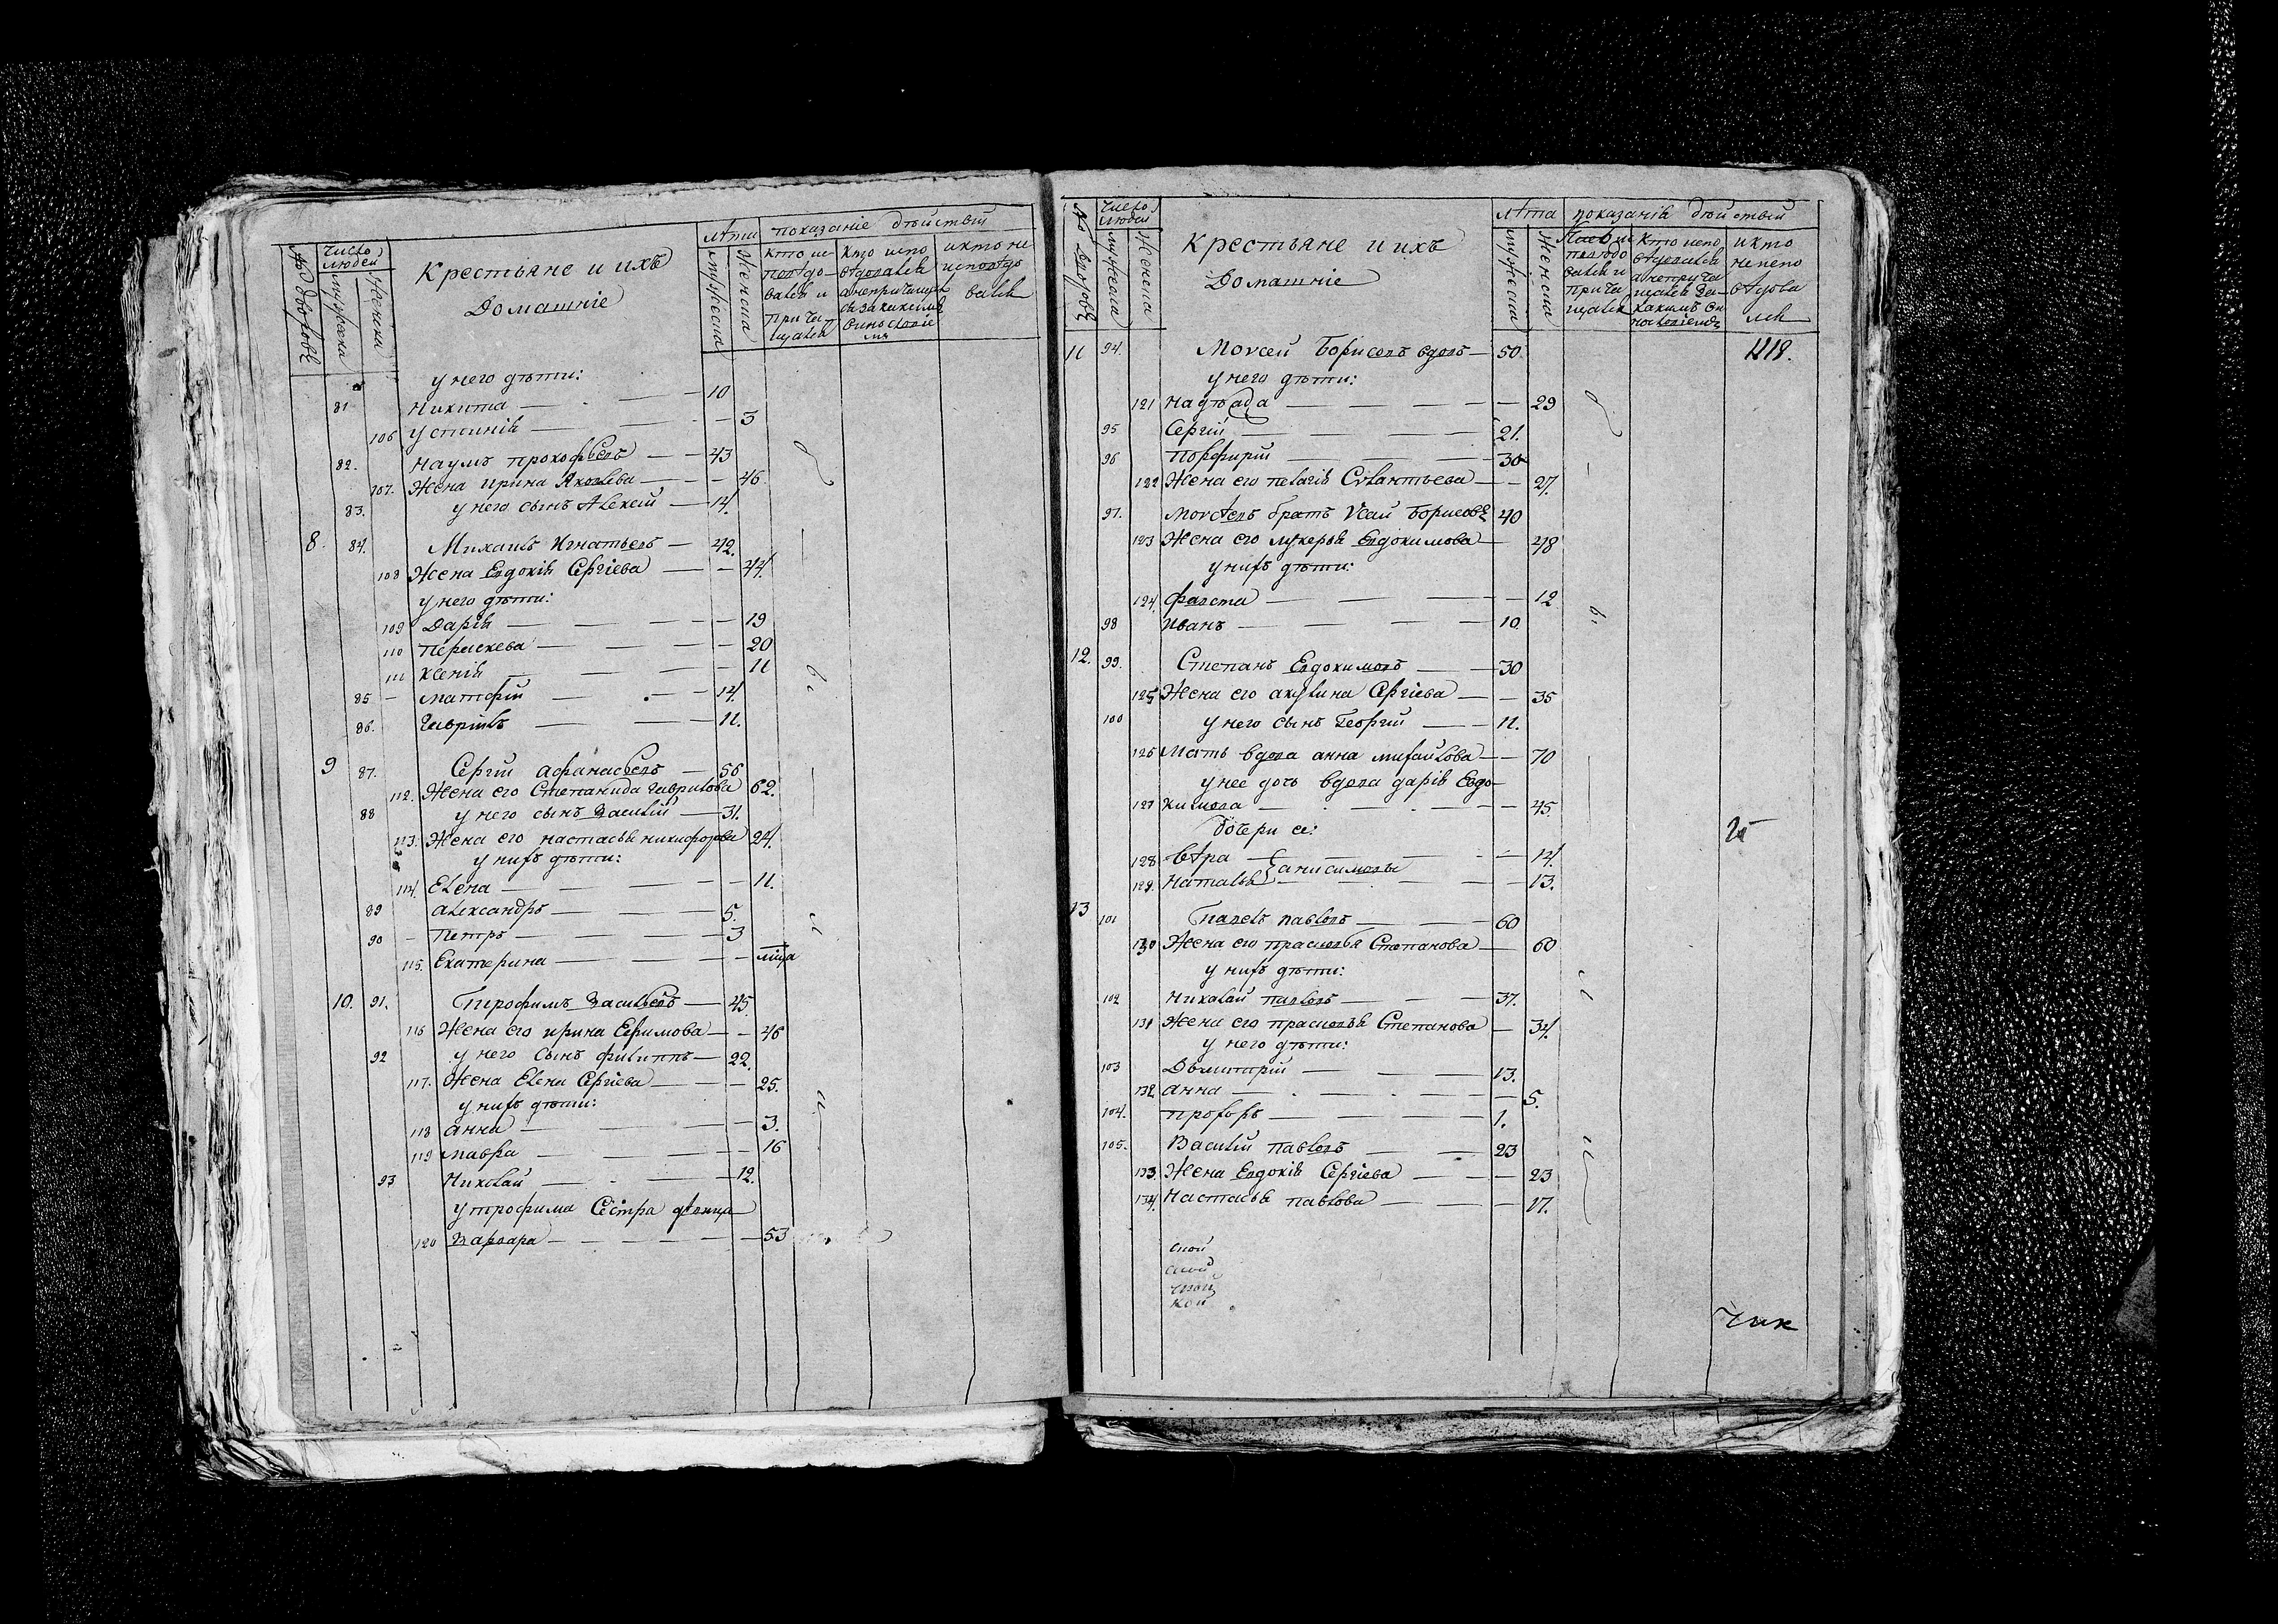 № дворовъ
Число людей
мужеска
Женска
Крестьяне и ихъ
Домашнїе
лѣта
мужеска
Женска
показанїе дѣйствїй
кто исповѣдовался и причащался
кто исповѣдовался а непричащался
и кто неисповѣдовался
у него дѣти:
81 Никита — 10
106 Устинїя — 3
82. Наумъ прокофьевъ — 43
107. Жена ирина Яковлева — 46
83. у него сынъ Алексей — 14.
8. 84. Михаилъ Игнатьевъ — 42.
108 Жена Евдокїя Сергїева — 44.
у него дѣти:
109 Дарїя — 19
110 Переskева — 20
111 ксенїя — 11
85 — матфїй — 14.
86. Гаврїилъ — 11.
9 87. Сергїй афанасьевъ — 56
112. Жена его Степанида гаврилова 62.
88 у него сынъ Василїй — 31.
113. Жена его настасья никифорова 24.
у нихъ дѣти:
114. Елена — 11.
89 александръ — 5.
90 — Петръ — 3
115. Екатерина — мца
10. 91. Трофимъ Васильевъ — 45.
116 Жена его ирина Ефимова — 46
92 у него сынъ филиппъ — 22.
117. Жена Елена Сергїева — 25.
у нихъ дѣти:
118 анна — 3.
119 мавра — 16
93 Николай — 12.
у трофима Сестра девица
120 Варвара — 53
№ дворовъ
Число людей
мужеска
Женска
Крестьяне и ихъ
Домашнїе
лѣта
мужеска
Женска
показанїя дѣйствїй
и кто неисповѣдовался
11 94. Моvсей Борисовъ вдовъ — 50.
1118.
у него дѣти:
121 надѣжда — 29
95 Сергїй — 21.
96 Порфирїй — 30
122 Жена его пелагїя Силантьева — 27.
97. Моvсѣевъ братъ Vсаий Борисовъ 40
123 Жена его лукерья Евдокимова — 48
у нихъ дѣти:
124. фавста — 12
98 Иванъ — 10.
12. 99. Степанъ Евдокимовъ — 30
125 Жена его акулина Сергїева — 35
100 у него сынъ Георгїй — 11.
126 Мать вдова анна михайлова — 70
у нее дочь вдова дарїя Евдо-
127 кимова — 45.
дочери ее:
128 вѣра — 14.
анисимовы
129. Наталья — 13.
13 101 Павелъ павловъ — 60
130 Жена его прасковья Степанова — 60
у нихъ дѣти:
102 Николай павловъ — 37.
131 Жена его прасковья Степанова — 34.
у него дѣти:
103 Дмитрїй — 13.
132 анна — 5.
104. прохоръ — 1.
105. Василїй павловъ — 23
133. Жена Евдокїя Сергїева — 23
134. Настасья павлова — 17.